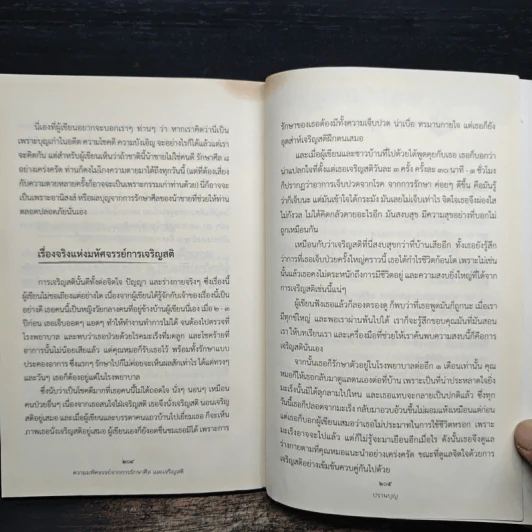 นี่เองที่ผู้เขียนอยากจะบอกเราๆ ท่านๆ ว่า หากเราคิดว่านี่เป็น
เพราะบุญเก่าในอดีต ความโชคดี ความบังเอิญ จะอย่างไรก็ได้แล้วแต่เรา
จะคิดกัน แต่สำหรับผู้เขียนเห็นว่าถ้าชาตินี้น้าชายไม่ใช่คนดี รักษาศีล ๘
อย่างเคร่งครัด ท่านก็คงไม่ไกลความตายมาได้ถึงทุกวันนี้ (แต่ที่ต้องเสี่ยง
กับความตายหลายครั้งก็อาจจะเป็นเพราะกรรมเก่าท่านด้วย) นี่ก็อาจจะ
เป็นเพราะอานิสงส์ หรือผลบุญจากการรักษาศีลของน้าชายที่ช่วยให้ท่าน
รอดปลอดภัยนั่นเอง
เรื่องจริงแห่งมหัศจรรย์การเจริญสติ
การเจริญสตินั้นดีทั้งต่อจิตใจ ปัญญา และร่างกายจริงๆ ซึ่งเรื่องนี้
ผู้เขียนไม่ขอเถียงแต่อย่างใด เนื่องจากผู้เขียนได้รู้จักกับเจ้าของเรื่องนี้เป็น
อย่างดี เธอคนนี้เป็นหญิงวัยกลางคนที่อยู่ข้างบ้านผู้เขียนนี่เอง เมื่อ ๒ - ๓
ปีก่อน เธอเจ็บออดๆ แอดๆ ทำให้ทำงานทำการไม่ได้ จนต้องไปตรวจที่
โรงพยาบาล และพบว่าเธอป่วยด้วยโรคมะเร็งที่มดลูก และโชคร้ายที่
อาการนั้นไม่น้อยเสียแล้ว แต่คุณหมอก็รับเธอไว้ พร้อมทั้งรักษาแบบ
ประคองอาการ ซึ่งแรกๆ รักษาไปก็ไม่ค่อยจะเห็นผลสักเท่าไร ได้แต่ทรงๆ
และวันๆ เธอก็ต้องอยู่แต่ในโรงพยาบาล
ซึ่งนับว่าเป็นโชคดีมากที่เธอคนนี้ไม่ได้ถอดใจ นั่งๆ นอนๆ เหมือน
คนป่วยอื่นๆ เนื่องจากเธอสนใจใฝ่เจริญสติ เธอจึงนั่งเจริญสติ นอนเจริญ
สติอยู่เสมอ และเมื่อผู้เขียนและบรรดาคนแถวบ้านไปเยี่ยมเธอ ก็จะเห็น
ภาพเธอนั่งเจริญสติอยู่เสมอ ผู้เขียนเองก็ยังอดชื่นชมเธอมิได้ เพราะการ
๒๐๔
ความมหัศจรรย์จากการรักษาศีล และเจริญสติ
รักษาของเธอต้องมีทั้งความเจ็บปวด น่าเบื่อ ทรมานกายใจ แต่เธอก็ยัง
อุตส่าห์เจริญสติฝึกตนเสมอ
และเมื่อผู้เขียนและชาวบ้านที่ไปด้วยได้พูดคุยกับเธอ เธอก็บอกว่า
น่าแปลกใจที่ตั้งแต่เธอเจริญสติวันละ ๓ ครั้ง ครั้งละ ๓๐ นาที - ๑ ชั่วโมง
ก็ปรากฏว่าอาการเจ็บปวดจากโรค จากการรักษา ค่อยๆ ดีขึ้น คือมันรู้
ว่าก็เจ็บนะ แต่มันเข้าใจได้กระมัง มันเลยไม่เจ็บเท่าเก่า จิตใจเธอจึงผ่องใส
ไม่กังวล ไม่ได้คิดกลัวตายอะไรอีก มันสงบสุข มีความสุขอย่างที่บอกไม่
ถูกเหมือนกัน
เหมือนกับว่าเจริญสติที่นี่สงบสุขกว่าที่บ้านเสียอีก ทั้งเธอยังรู้สึก
ว่าการที่เธอเจ็บป่วยครั้งใหญ่คราวนี้ เธอได้กำไรชีวิตก้อนโต เพราะไม่เช่น
นั้นแล้วเธอคงไม่ตระหนักถึงการมีชีวิตอยู่ และความสงบยิ่งใหญ่ที่ได้จาก
การเจริญสติเช่นนี้แน่ๆ
ผู้เขียนฟังเธอแล้วก็ลองตรองดู ก็พบว่าที่เธอพูดมันก็ถูกนะ เมื่อเรา
มีทุกข์ใหญ่ และพอเราผ่านพ้นไปได้ เราก็จะรู้สึกขอบคุณมันที่มันสอน
เรา ให้บทเรียนเรา และเครื่องมือที่ช่วยให้เราค้นพบความสงบนี้ก็คือการ
เจริญสตินั่นเอง
จากนั้นเธอก็รักษาตัวอยู่ในโรงพยาบาลต่ออีก ๓ เดือนเท่านั้น คุณ
หมอก็ให้เธอกลับมาดูแลตนเองต่อที่บ้าน เพราะเป็นที่น่าประหลาดใจยิ่ง
มะเร็งนั้นมิได้ลุกลามไปไหน และเธอแทบจะกลายเป็นปกติแล้ว ซึ่งทุก
วันนี้เธอก็ปลอดจากมะเร็ง กลับมาอวบอ้วนขึ้นไม่ผอมแห้งเหมือนแต่ก่อน
แต่เธอก็บอกกับผู้เขียนเสมอว่าเธอไม่ประมาทในการใช้ชีวิตหรอก เพราะ
มะเร็งอาจจะไปแล้ว แต่ก็ไม่รู้จะมาเยือนอีกเมื่อไร ดังนั้นเธอจึงดูแล
ร่างกายตามที่คุณหมอแนะนำอย่างเคร่งครัด ขณะที่ดูแลจิตใจด้วยการ
เจริญสติอย่างเข้มข้นควบคู่กันไปด้วย
๒๐๕
ปรานบุญ